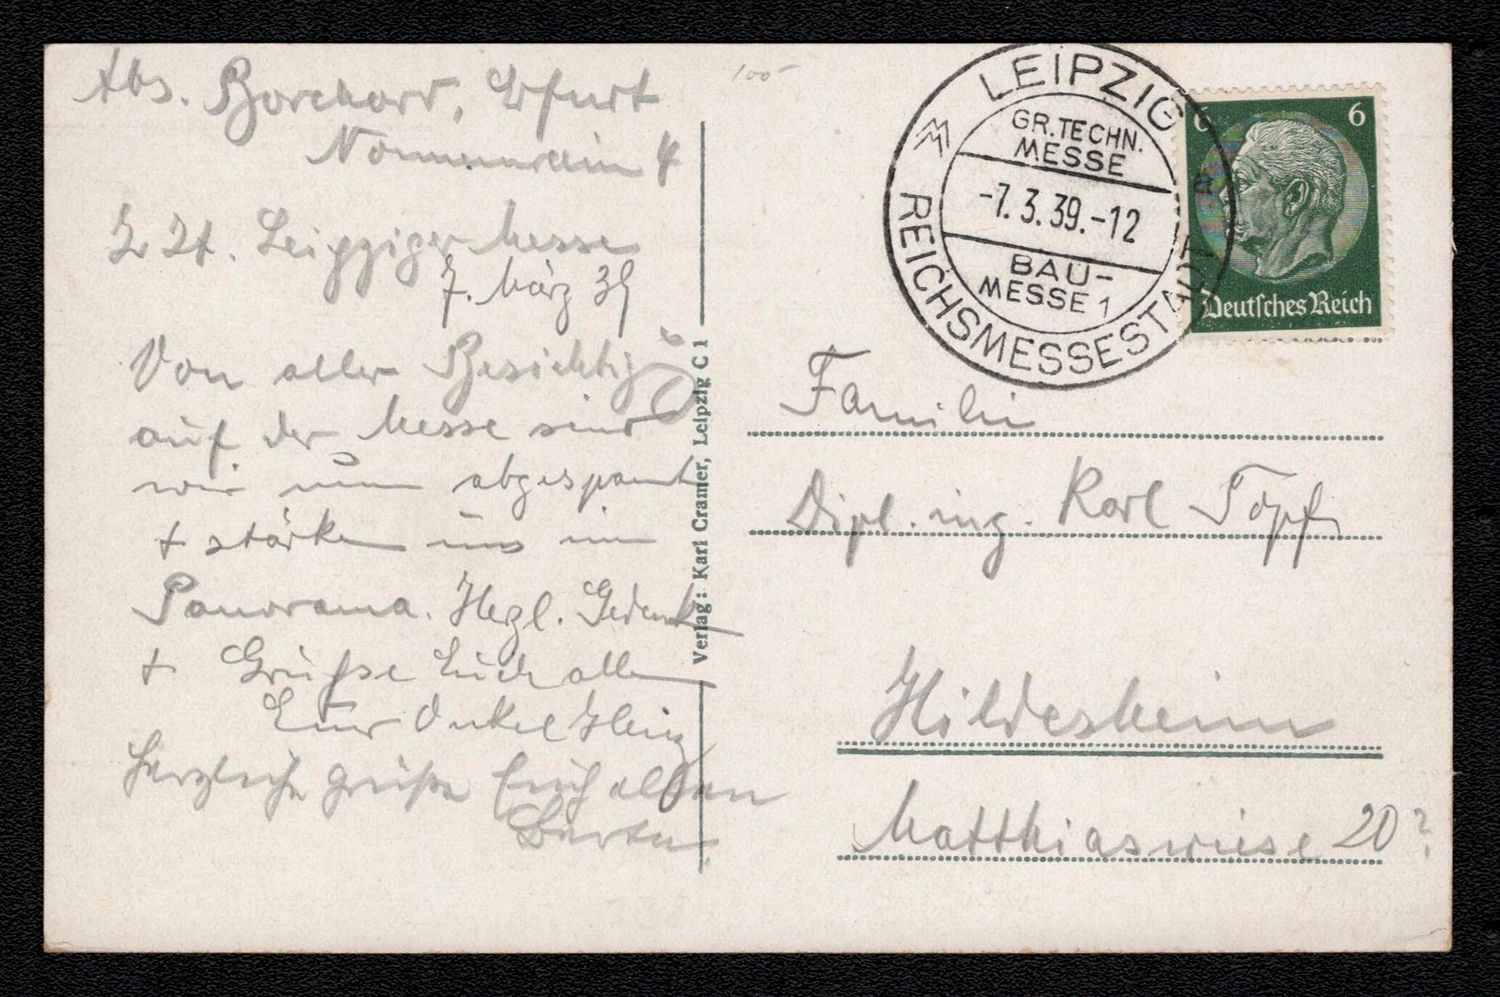 Abs. Borchard, Erfurt
Nonnenrain 4
Z. Zt. Leipziger Messe
7. März 39
Von aller Besichtig
auf der Messe sind
wir nun abgespannt
+ stärken uns im
Panorama. Herzl. Gedenk
+ Grüße Euch allen
Euer Onkel Heinz
Herzliche grüße Euch allen
Verlag: Karl Cramer, Leipzig C 1
100
LEIPZIG
GR. TECHN.
MESSE
-7.3.39.-12
BAU-
MESSE 1
REICHSMESSESTADT
6 6
Deutsches Reich
Familie
Dipl. ing. Karl Topf
Hildesheim
Matthiaswiese 20?